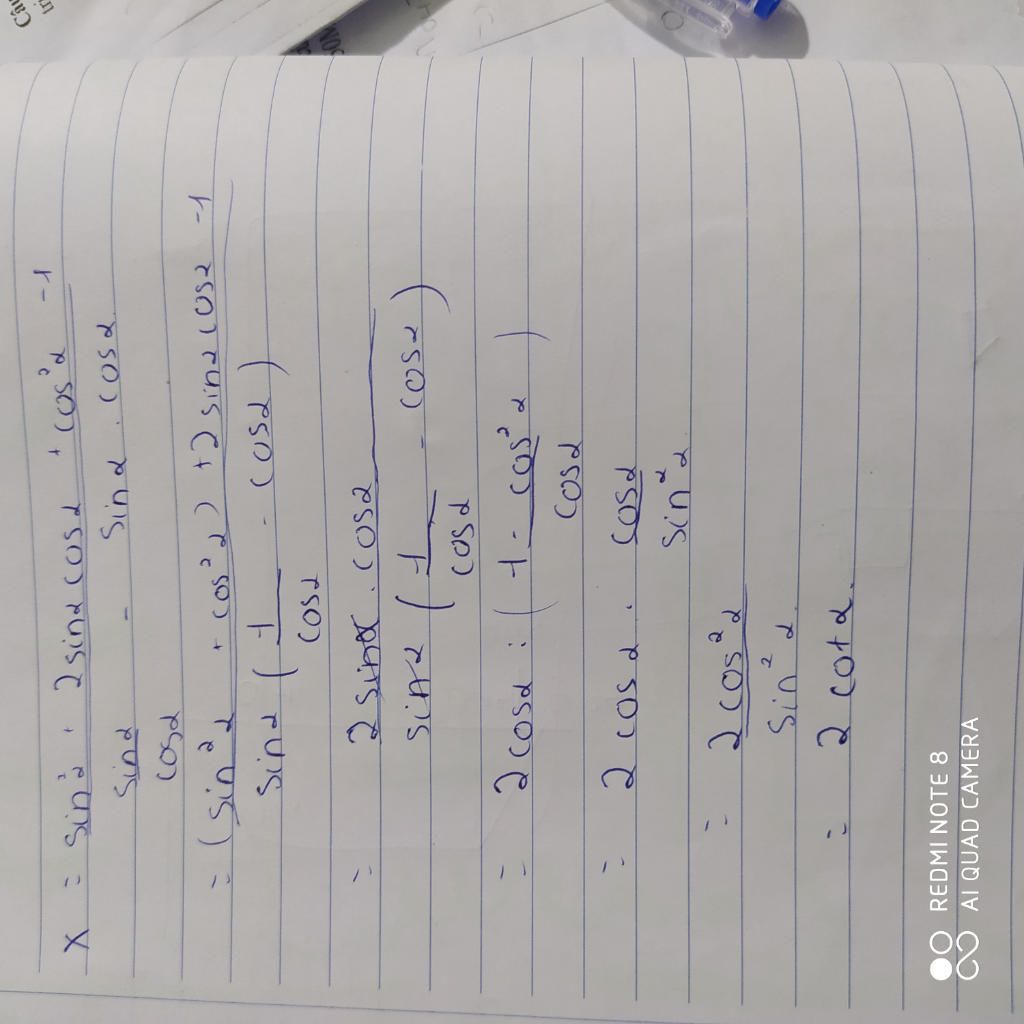 X = sin² + 2 sinα cosα + cos²α - 1
sinα - sinα . cosα
cosα
= (sin²α + cos²α) + 2 sinα cosα - 1
sinα ( 1 - cosα )
cosα
= 2 sinα . cosα
sinα ( 1 - cosα )
cosα
= 2 cosα : ( 1 - cos²α )
cosα
= 2 cosα . cosα
sin²α
= 2 cos²α
sin²α
= 2 cotα.
REDMI NOTE 8
AI QUAD CAMERA